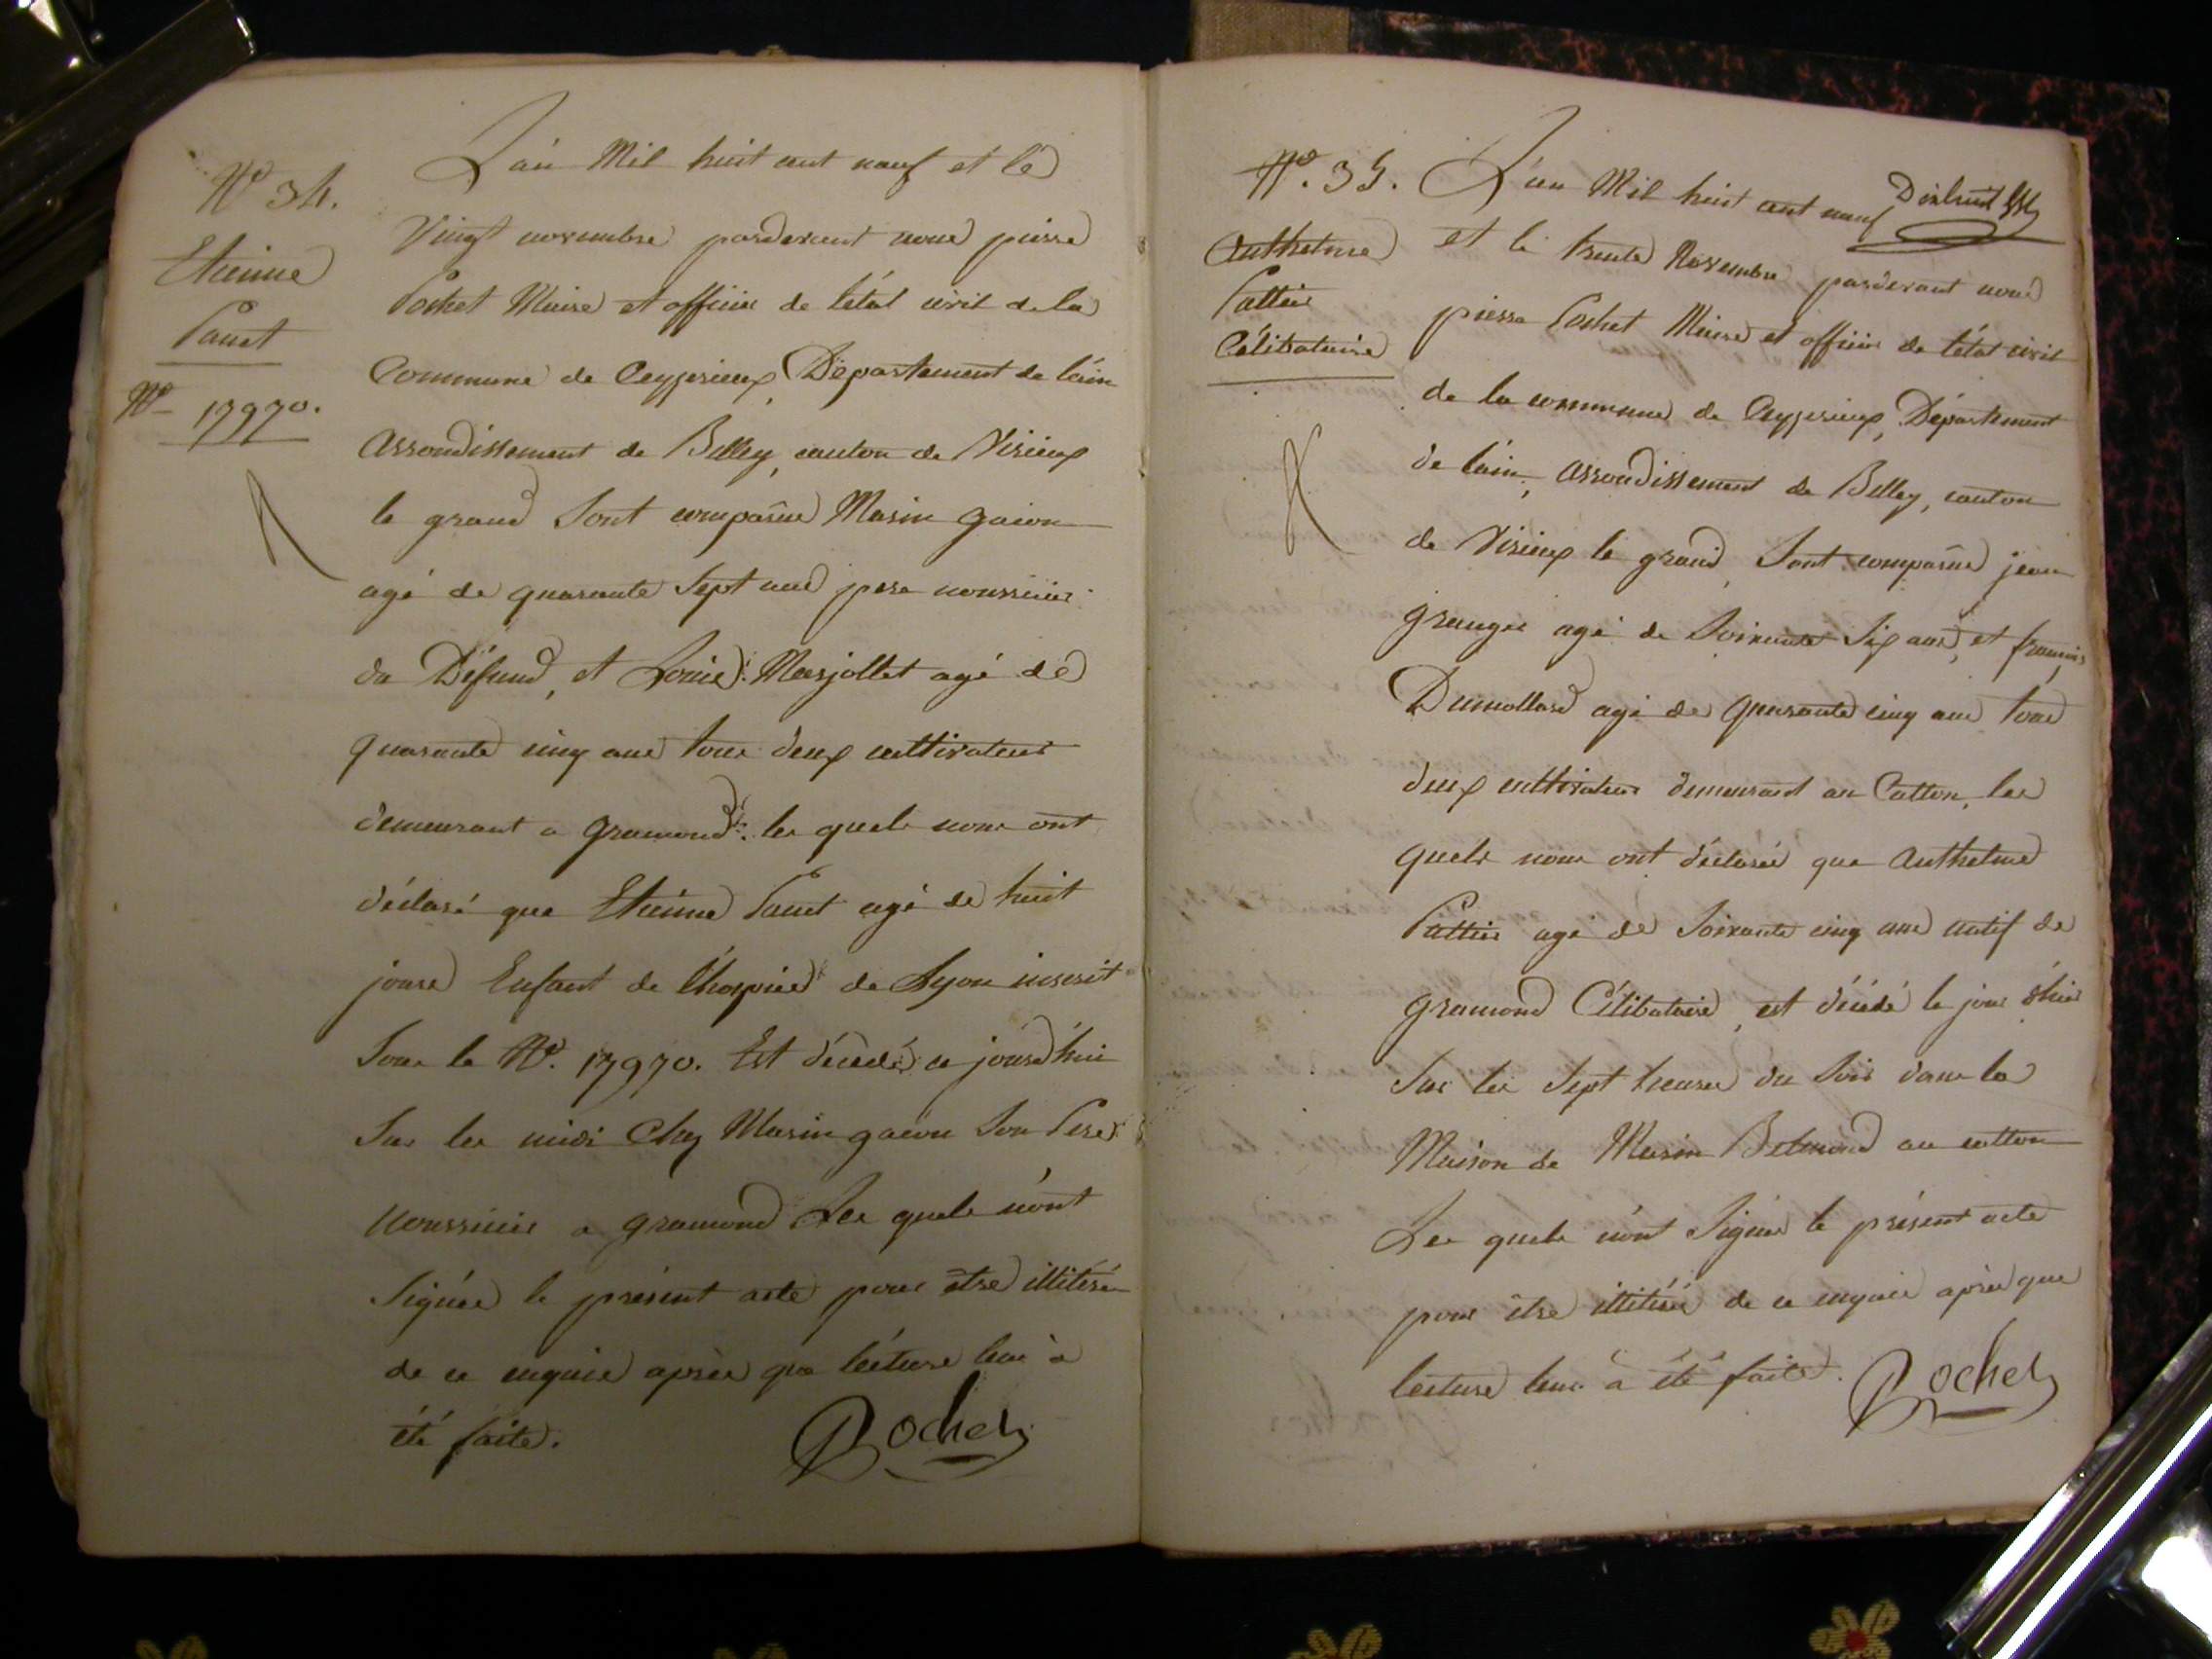 N° 34.
Etienne
Panet
N° 17970.
L'an Mil huit cent neuf et le
Vingt novembre pardevant nous pierre
Pochet Maire et officier de l'état civil de la
Commune de Ceyzerieux, Département de l'ain
Arrondissement de Belley, canton de Virieux
le grand Sont comparus Marin gaion
agé de quarante Sept ans pere nourricier
du Défunt, et Louis Marjollet agé de
quarante cinq ans tous deux cultivateurs
demeurant a gramond. les quels nous ont
déclaré que Etienne Panet agé de huit
jours Enfant de l'hospice de Lyon inscrit
Sous le N°. 17970. Est décédé ce jourd'hui
Sur les midi Chez Marin gaion Son Pere
Nourricier a gramond Les quels n'ont
Signés le présent acte pour être illitérés
de ce enquis après que lecture leur à
été faite.
Pochet
N°. 35.
Anthelme
Pattier
Célibataire
L'an Mil huit cent neuf
et le trente Novembre pardevant nous
pierre Pochet Maire et officier de l'état civil
de la commune de Ceyzerieux, Département
de l'ain, arrondissement de Belley, canton
de Virieux le grand, Sont comparus jean
granger agé de Soixante Six ans, et francois
Dumollard agé de quarante cinq ans tous
deux cultivateurs demeurant au Catton, les
quels nous ont déclarés que Anthelme
Pattier agé de Soixante cinq ans natif de
gramond Célibataire, est décédé le jour d'hier
Sur les Sept heures du Soir dans la
Maison de Marin Belmond au catton
Les quels n'ont Signés le présent acte
pour être illitérés de ce enquis après que
lecture leur à été faite.
Pochet